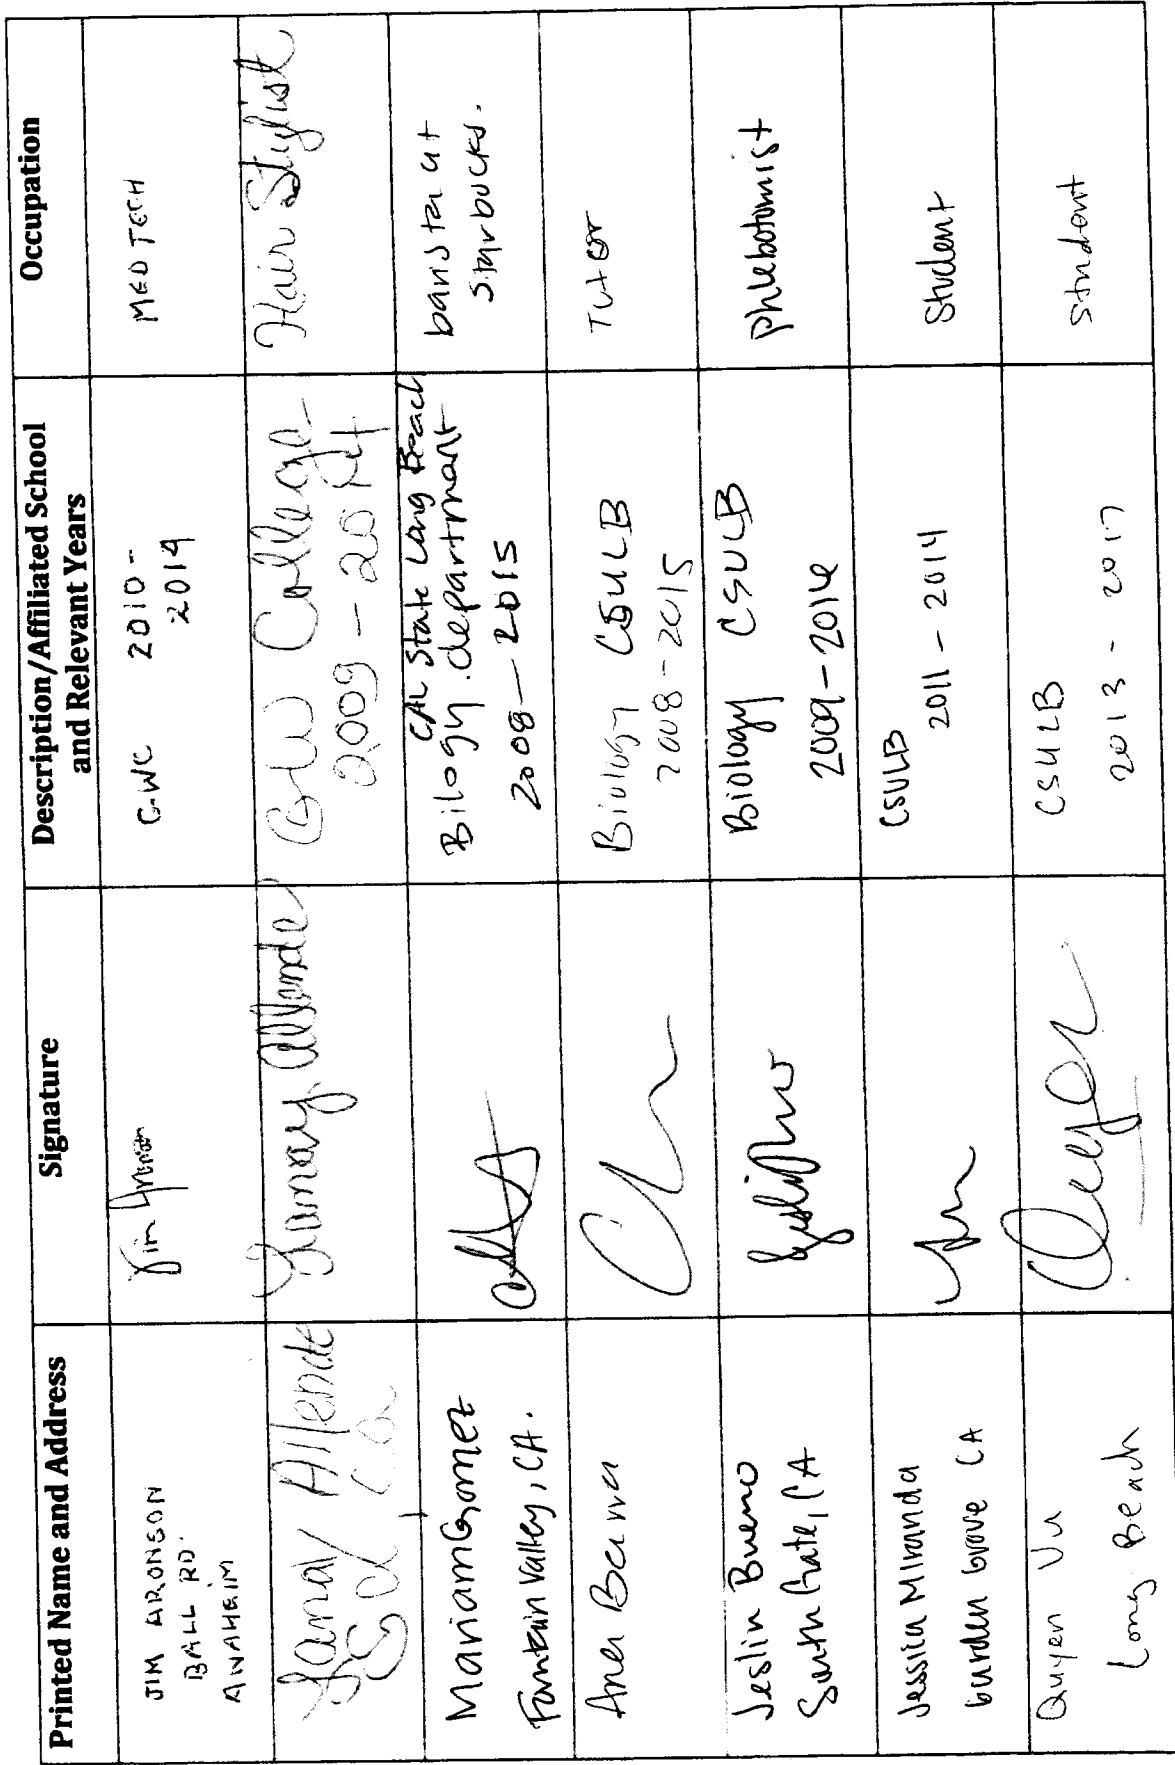 Printed Name and Address
Signature
Description/Affiliated School
and Relevant Years
Occupation
JIM ARONSON
BALL RD
ANAHEIM
GWC 2010 -
2014
MED TECH
Allende
Allende
GW College
2009 - 2014
Hair Stylist
Mariam Gomez
Fountain Valley, CA.
CAL State Long Beach
Bilogy department
2008 - 2015
barista at
Starbucks.
Biology CSULB
2008 - 2015
Tutor
Jeslin Bueno
South Gate, CA
Biology CSULB
2009 - 2016
phlebotomist
Jessica Miranda
Garden Grove CA
CSULB
2011 - 2014
Student
Quyen Vu
Long Beach
CSULB
2013 - 2017
Student